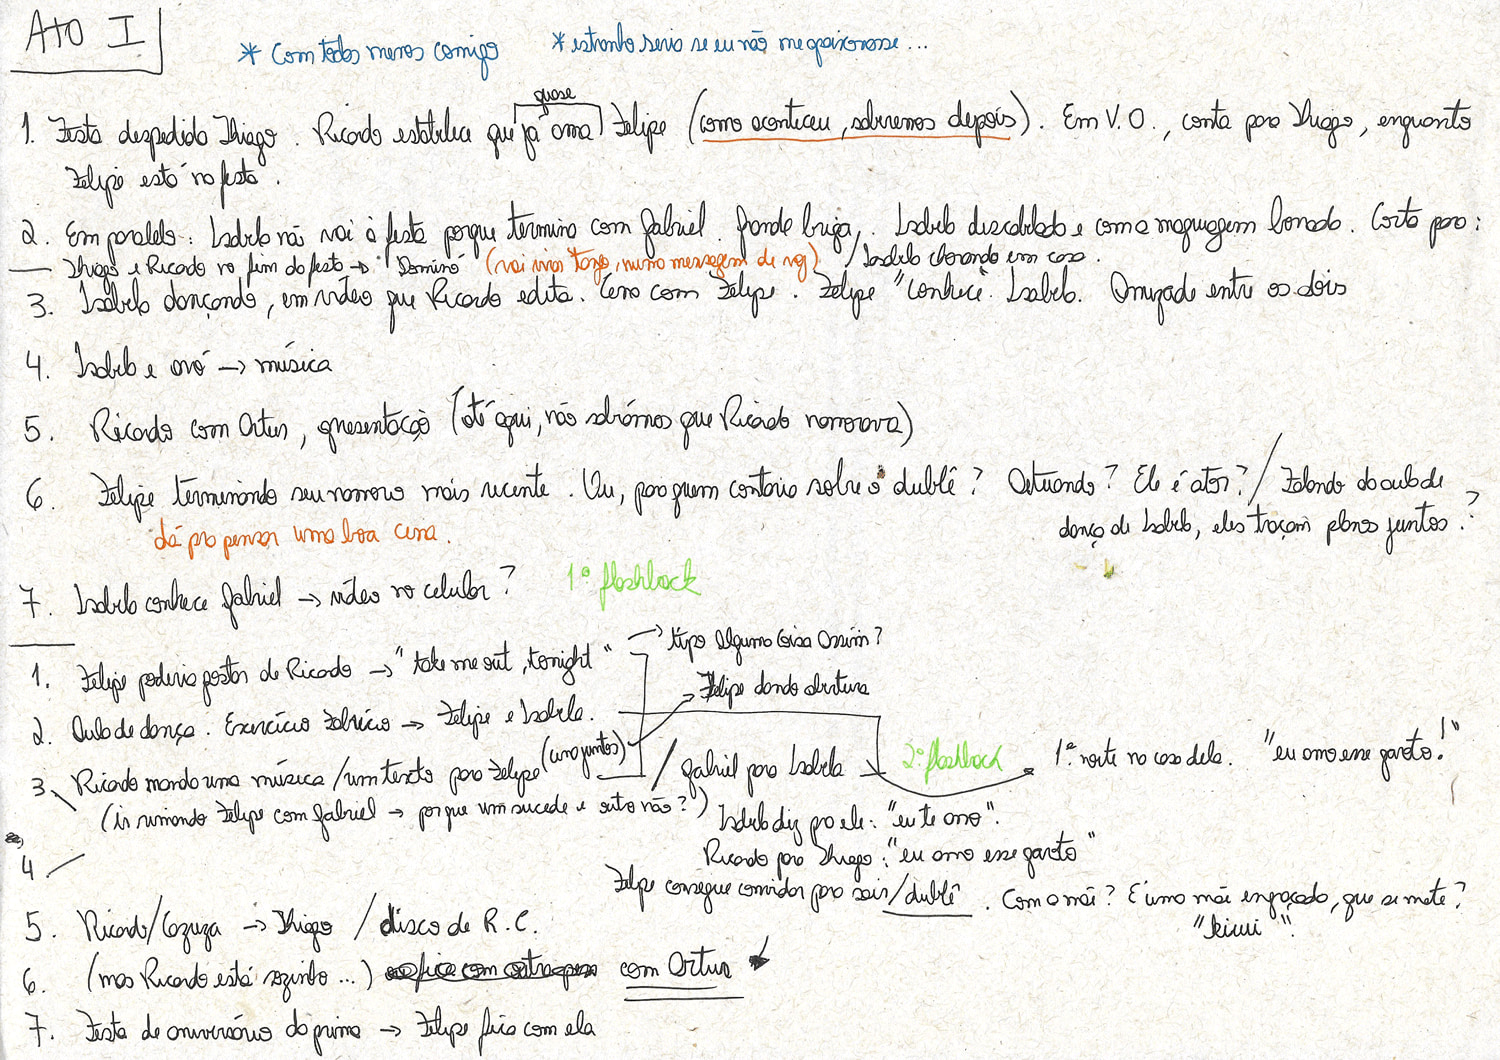 Ato I
* Com todos menos comigo
* estranho seria se eu não me apaixonasse...
quase
1. Festa despedida Thiago. Ricardo estabelece que já ama Felipe (como aconteceu, saberemos depois). Em V.O., conta para Thiago, enquanto
Felipe está na festa.
2. Em paralelo: Isabela não vai à festa porque termina com Gabriel. Grande briga. Isabela descabelada e com a maquiagem borrada. Corta para:
Thiago e Ricardo no fim da festa → "Dominó" (vai mais tarde, numa mensagem de voz) / Isabela chorando em casa.
3. Isabela dançando, em vídeo que Ricardo edita. Cena com Felipe. Felipe "conhece" Isabela. Amizade entre os dois
4. Isabela e avó → música
5. Ricardo com Artur, apresentação (até aqui, não sabíamos que Ricardo namorava)
6. Felipe terminando seu namoro mais recente. Ou, para quem contaria sobre o dublê? Atuando? Ele é ator? / Falando da aula de
dança de Isabela, eles traçam planos juntos.?
dá pra pensar uma boa cena.
7. Isabela conhece Gabriel → vídeo no celular? 1º flashback
1. Felipe poderia gostar de Ricardo → "take me out, tonight" → tipo alguma coisa assim?
→ Felipe dando abertura
2. Aula de dança. Exercício Fabrício → Felipe e Isabela.
3. Ricardo manda uma música / um texto para Felipe (juntos) / Gabriel para Isabela 2º flashback 1ª noite na casa dela. "eu amo esse garoto!"
(ir rimando Felipe com Gabriel → porque um sucede e outro não?) Isabela diz pra ele: "eu te amo".
Ricardo para Thiago: "eu amo esse garoto"
4
Felipe consegue convidar para sair / dublê. Com a mãe? É uma mãe engraçada, que se mete?
"Kiwi".
5. Ricardo/Cazuza → Thiago / disco de R.C.
6. (mas Ricardo está sozinho...) com Artur
7. Festa de aniversário da prima → Felipe fica com ela